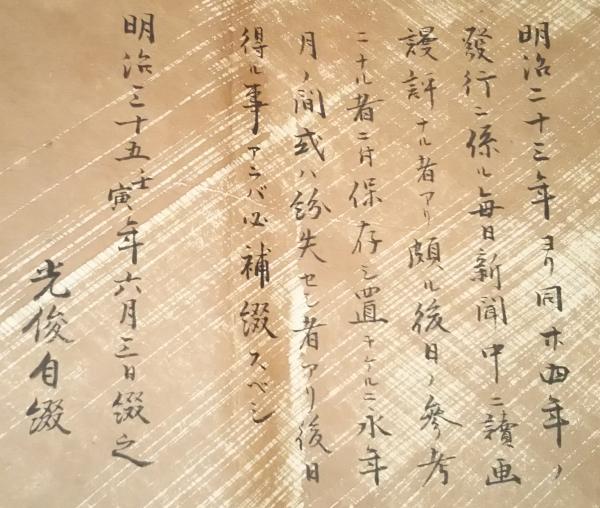 明治二十三年ヨリ同廿四年ノ
發行ニ係ル毎日新聞中ニ讀画
謾評ナル者アリ頗ル後日ノ參考
ニナル者ニ付保存シ置キケルニ永年
月ノ間或ハ紛失セシ者アリ後日
得ル事アラバ必補綴スベシ
明治三十五壬寅年六月三日綴之
光俊自綴